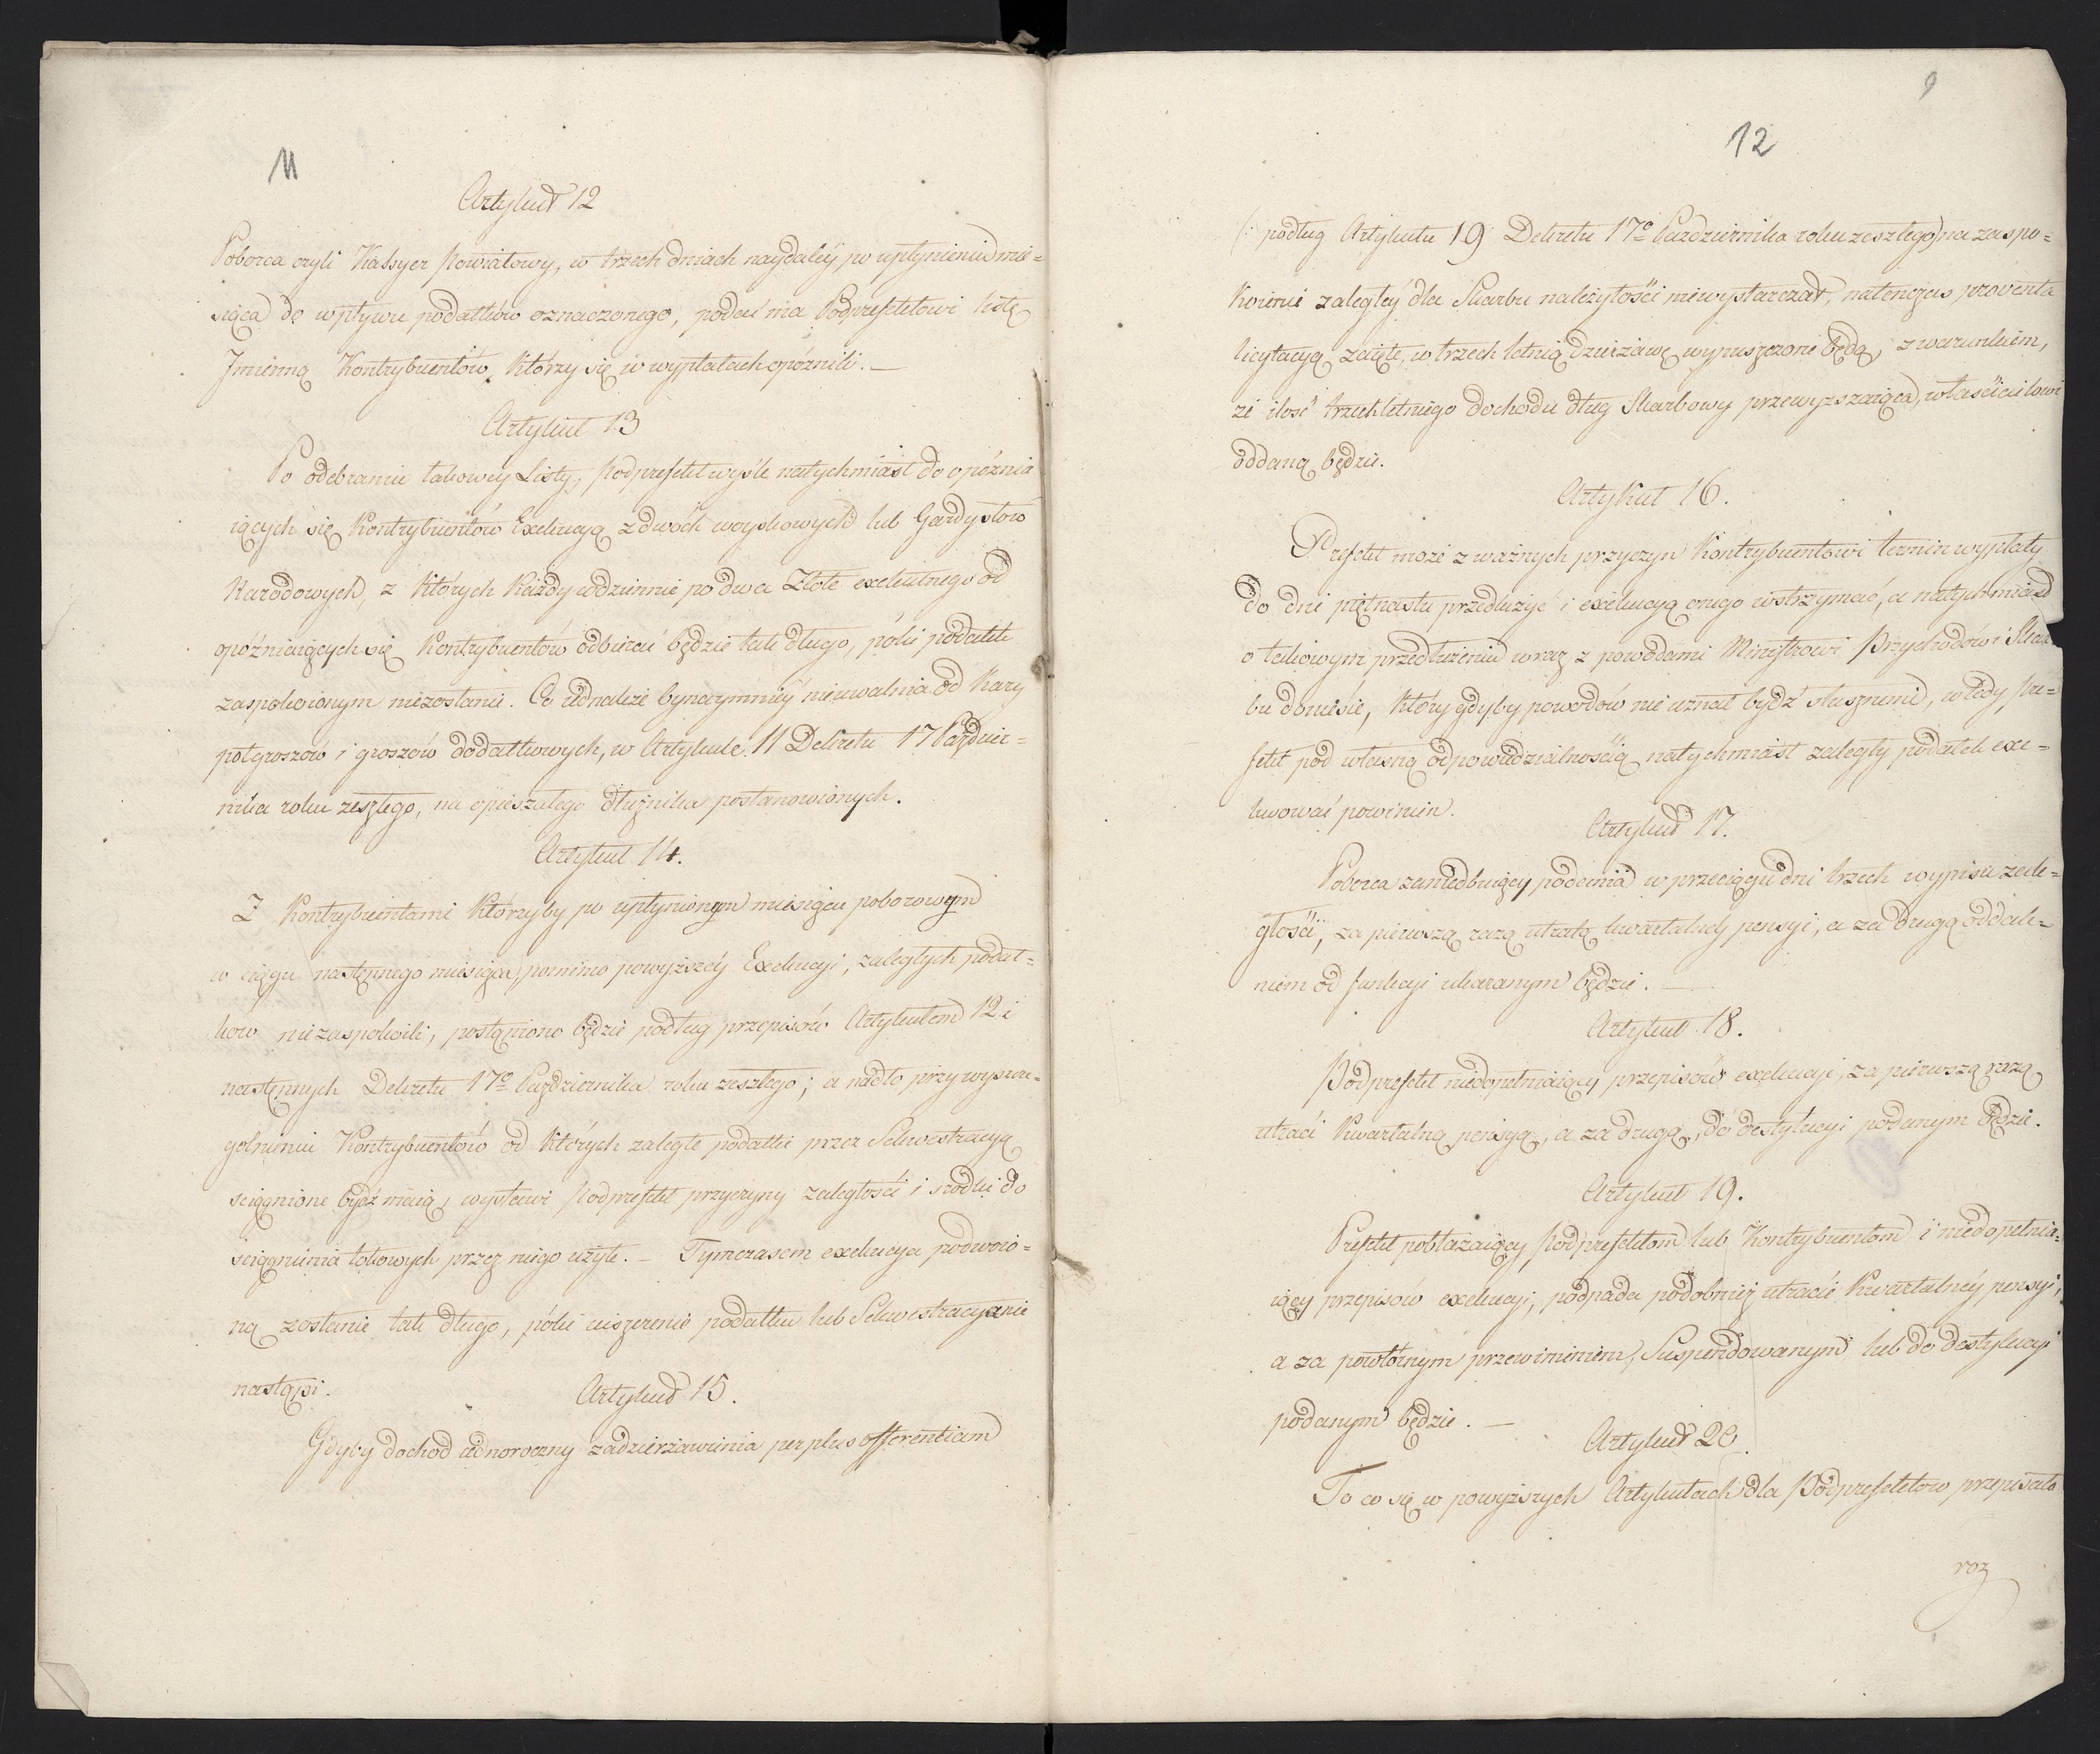 11
Artykuł 12
Poborca czyli Kassyer Powiatowy, w trzech dniach naydaléy, po upłynieniu mie=
siąca do wpływu podatków oznaczonego, podać ma Podprefektowi listę
Jmienną Kontrybuentów, którzy się w wypłatach opóźnili. —
Artykuł 13
Po odebraniu takowey Listy, Podprefekt wyśle natychmiast do opóźnia
iących się Kontrybuentów Exekucyą z dwóch woyskowych lub Gardystów
Narodowych, z których każdy codziennie po dwa Złote exekutnego od
opóźniaiących się Kontrybuentów odbierać będzie tak długo, póki podatek
zaspokoionym niezostanie. Co iednakże bynaymniéy nieuwalnia od Kary
półgroszów i groszów dodatkowych, w Artykule 11 Dekretu 17 Paździer=
nika roku zeszłego, na opieszałego dłużnika postanowionych.
Artykuł 14.
Z Kontrybuentami którzyby po upłynionym miesiącu poborowym
w ciągu następnego miesiąca, pomimo powyższéy Exekucyi, zaległych podat=
ków niezaspokoili, postąpiono będzie podług przepisów Artykułem 12 i
następnych Dekretu 17º Października roku zeszłego; a nadto przy wyszcze=
gólnieniu Kontrybuentów od których zaległe podatki przez Sekwestracyą
sciągnione bydź maią, wystawi Podprefekt przyczyny zaległości i srodki do
sciągnienia takowych przez niego użyte. — Tymczasem exekucya podwoio=
ną zostanie tak długo, póki uiszczenie podatku lub Sekwestracya nie
nastąpi.
Artykuł 15.
Gdyby dochod iednoroczny zadzierżawienia per plus offerentiam
9
12
(: podług Artykułu 19 Dekretu 17º Października roku zeszłego) na zaspo=
koienie zaległéy dla Skarbu należytości niewystarczał, natenczas proventa
licytacyą zaięte, w trzech letnią dzierżawę wypuszczone będą, z warunkiem,
że ilość trzechletniego dochodu dług Skarbowy przewyższaiąca, właścicielowi
oddaną będzie.
Artykuł 16.
Prefekt może z ważnych przyczyn Kontrybuentowi termin wypłaty
do dni piętnastu przedłużyć i exekucyą onego wstrzymać, a natychmiast
o takowym przedłużeniu wraz z powodami Ministrowi Przychodów i Skar
bu doniesie, który gdyby powodów nie uznał bydź słusznemi, wtedy Pre=
fekt pod własną odpowiedzialnością natychmiast zaległy podatek exe=
kwować powinien.
Artykuł 17.
Poborca zaniedbuiący podania w przeciągu dni trzech wypisu zale=
głości, za pierwszą razą utratą kwartalnéj pensyi, a za drugą oddale=
niem od funkcyi ukaranym będzie. —
Artykuł 18.
Podprefekt niedopełniaiący przepisów exekucyi, za pierwszą razą
utraci kwartalną pensyą, a za drugą, do destytucyi podanym będzie.
Artykuł 19.
Prefekt pobłażaiący Podprefektom lub Kontrybuentom i niedopełnia=
iący przepisów exekucyi, podpada podobnież utracie kwartalnéy pensyi,
a za powtórnym przewinieniem, Suspendowanym lub do destytucyi
podanym będzie. —
Artykuł 20.
To co się w powyższych Artykułach dla Podprefektow przepisało
roz